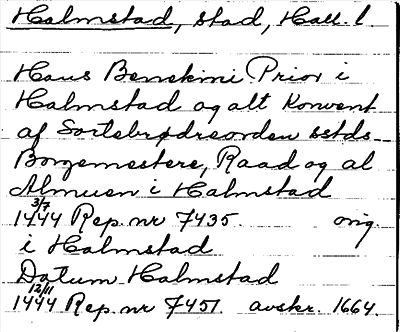 Halmstad, stad, Hall. l.
Hans Benskini Prior i
Halmstad og alt Konvent
af Sortebrødreorden sstds.
Borgemestere, Raad og al
Almuen i Halmstad
3/7
1444 Rep. nr 7435. orig.
i Halmstad
Datum Halmstad
12/11
1444 Rep. nr 7451. avskr. 1664.